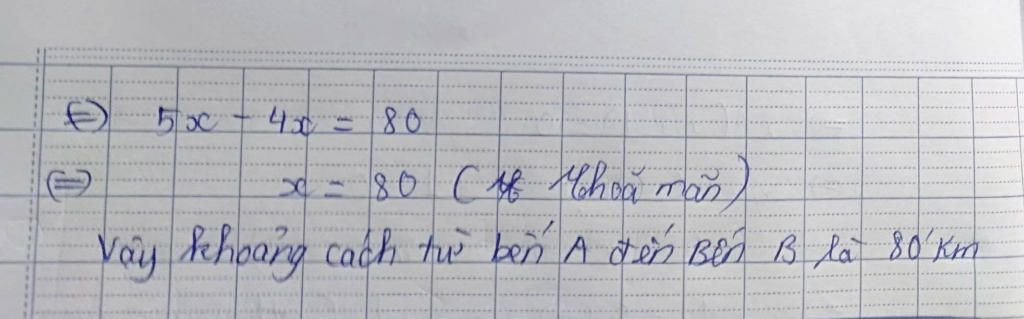 ⇔ 5x - 4x = 80
⇔ x = 80 (thoả mãn)
Vậy khoảng cách từ bến A đến Bến B là 80 km